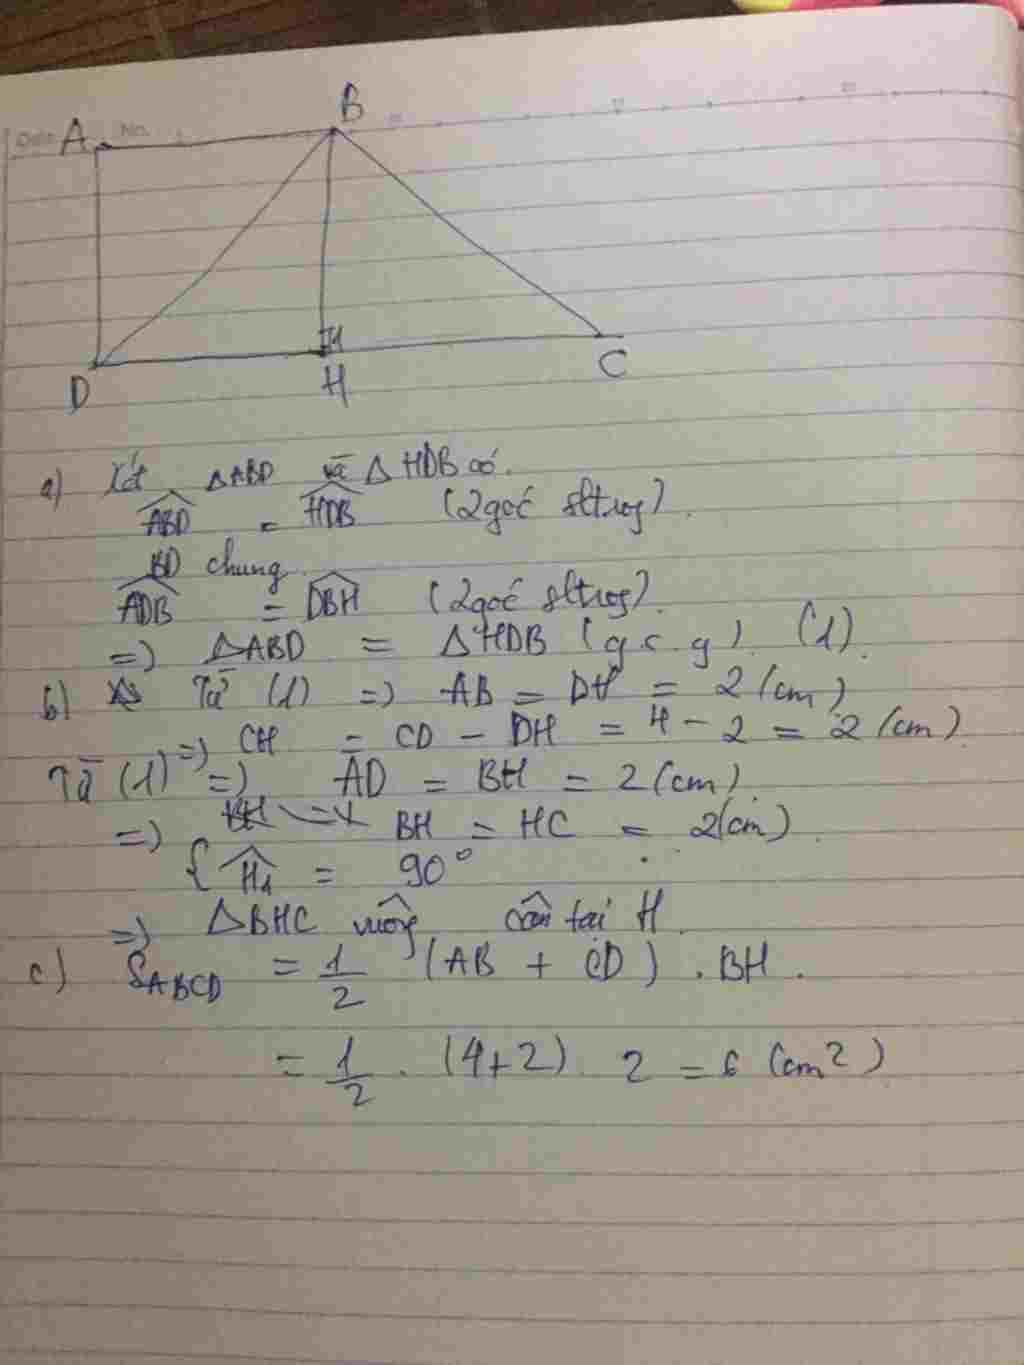 Date No.
A B
D H C
a) Xét ΔABD và ΔHDB có.
ABD^ = HDB^ (2 góc sltrog).
BD chung
ADB^ = DBH^ (2 góc sltrog).
=> ΔABD = ΔHDB (g.c.g) (1).
b) Từ (1) => AB = DH = 2 (cm)
=> CH = CD - DH = 4 - 2 = 2 (cm)
Từ (1) => AD = BH = 2 (cm).
=> { BH = HC = 2 (cm).
H1^ = 90°
=> ΔBHC vuông cân tại H.
c) SABCD = 1/2 (AB + CD) . BH.
= 1/2 . (4+2) 2 = 6 (cm²)